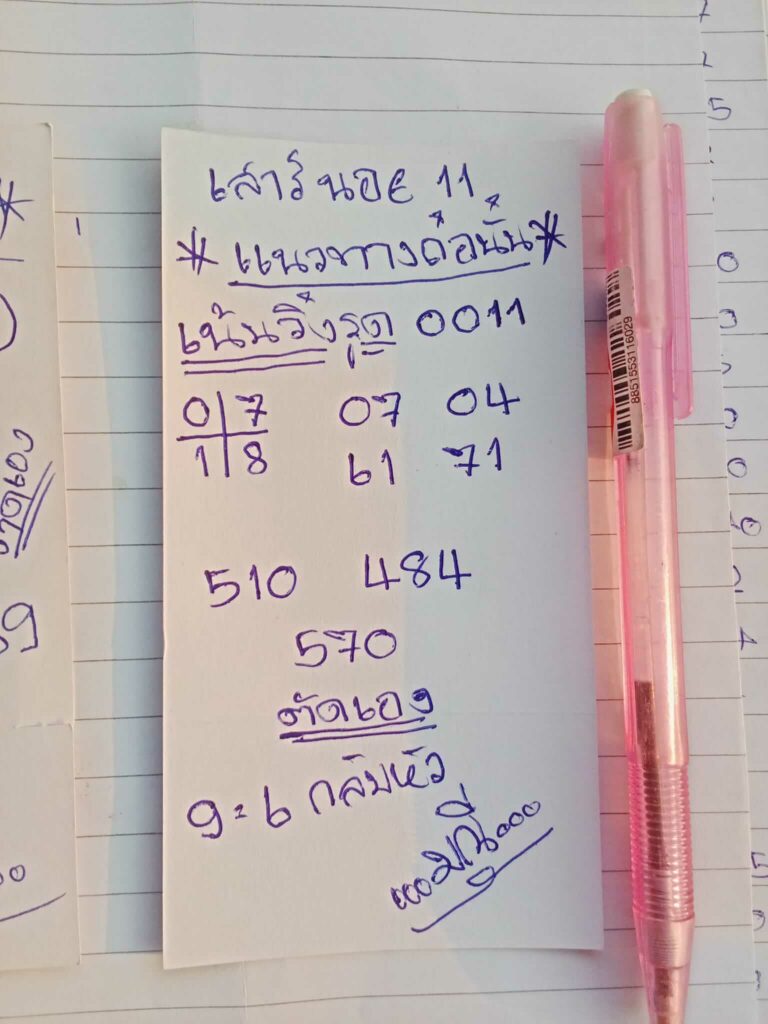 เสาร์ นอย 11
* แนวทางฮานอย *
เน้นวิ่งรูด 0011
0 7
1 8
07 04
61 71
510 484
570
ตัดเอง
9=6 กลับหัว
8851553116029
ตัดเอง